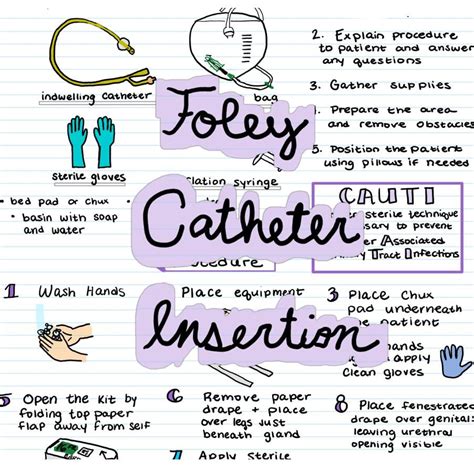 2. Explain procedure
to patient and answer
any questions
3. Gather supplies
Prepare the area
and remove obstacles
5. Position the patient
using pillows if needed
indwelling catheter
bag
Foley
Catheter
Insertion
sterile gloves
flation syringe
• bed pad or chux
• basin with soap
and water
CAUTI
sterile technique
necessary to prevent
Associated
Tract Infections
cedure
1 Wash Hands
Place equipment
3 Place Chux
pad underneath
patient
hands
apply
clean gloves
5 Open the kit by
folding top paper
flap away from self
6 Remove paper
drape + place
over legs just
beneath gland
8 Place fenestrated
drape over genitals
leaving urethral
opening visible
7 Apply sterile